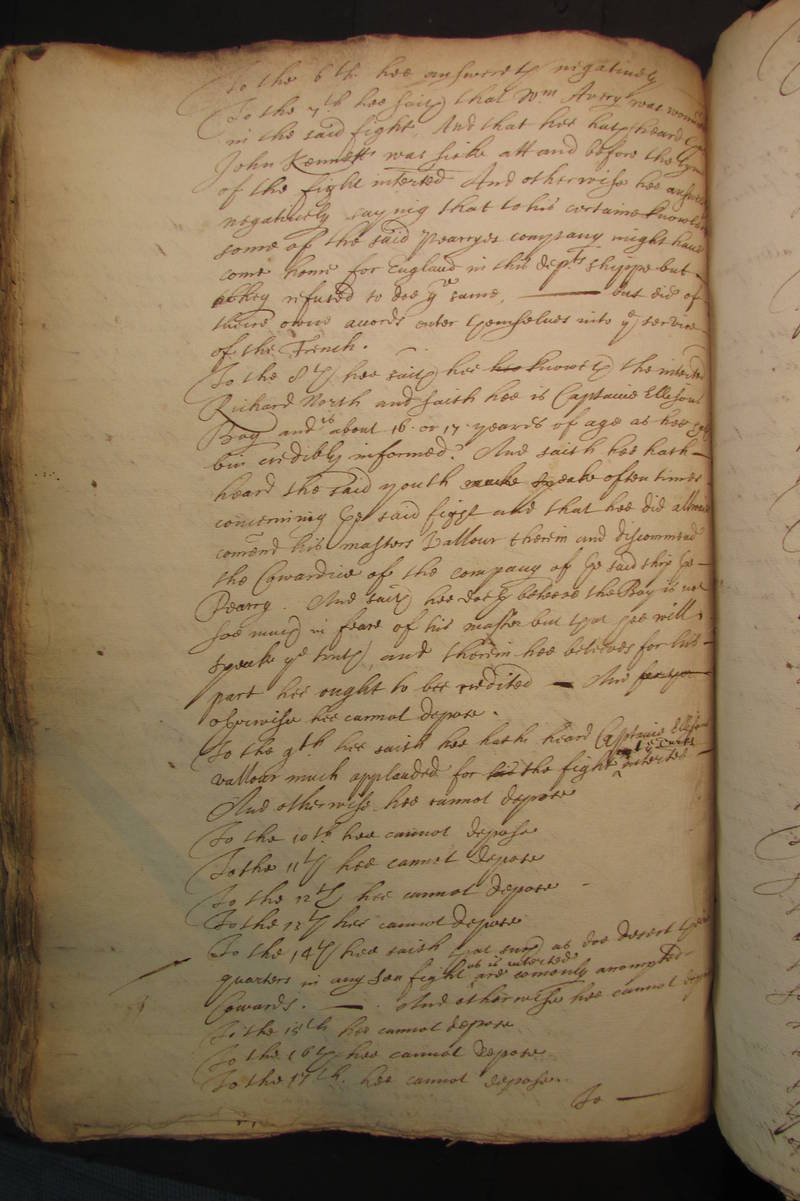 To the 6th. hee answereth negatively
To the 7th hee saith that Wm Avery was
in the said fight. And that hee hath heard
John Kennett was sicke att and before the tyme
of the fight interted And otherwise hee
negatively saying that to his certaine
some of the said Pearryes company might have
come home for England in this depts. shippe but
they refused to doe ye same, but did of
theire owne accords enter themselves into ye service
of the French.
To the 8th hee saith hee knoweth the
Richard North and saith hee is Captaine Ellisons
Boy and is about 16. or 17. yeares of age as hee
bin credibly informed. And saith hee hath
heard the said youth speake often times
concerning the said fight and that hee did
comend his masters vallour therein and discommend
the Cowardice of the company of the said ship the
Pearry. And saith hee doeth beleeve the Boy is not
soe much in feare of his master but that hee will
speake ye truth, and therein hee beleeves for his
part hee ought to bee credited And
otherwise hee cannot depose.
To the 9th hee saith hee hath heard Captaine Ellisons
vallour much applauded for the fight interted
And otherwise hee cannot depose
To the 10th hee cannot depose
To the 11th hee cannot depose
To the 12th hee cannot depose
To the 13th hee cannot depose
To the 14th hee saith that such as doe desert their
quarters in any Sea fight as is interted are comonly accompted
Cowards. And otherwise hee cannot
To the 15th hee cannot depose
To the 16th hee cannot depose
To the 17th. hee cannot depose.
To